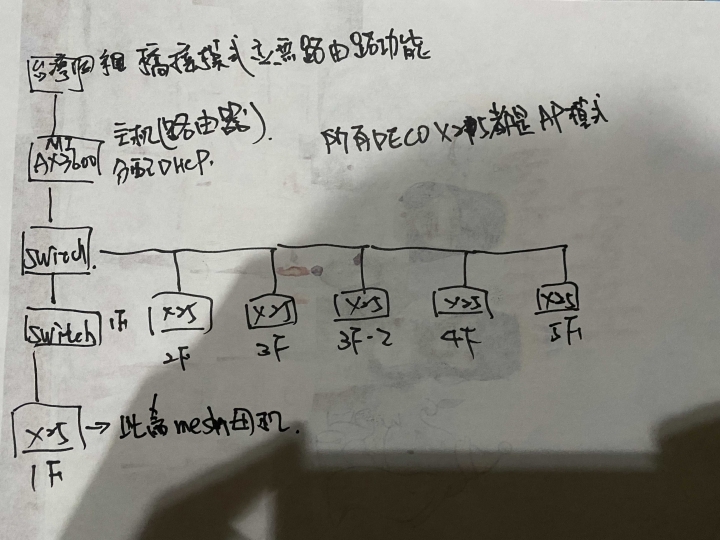 橋接模式並無路由路功能
MI
AX3600
主机(路由器).
分配DHCP.
所有DECO X25都是AP模式
switch
switch
1F
X25
2F
X25
3F
X25
3F-2
X25
4F
X25
5F
X25
1F
→ 此為mesh母机.